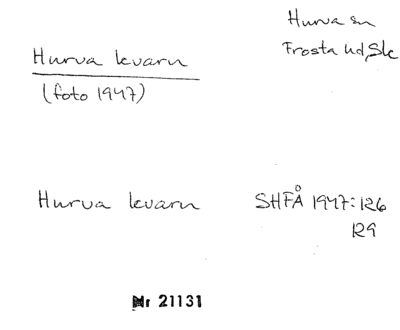 Hurva sn
Frosta hd, Sk
Hurva kvarn
(foto 1947)
Hurva kvarn
SHFÅ 1947:126
129
Nr 21131